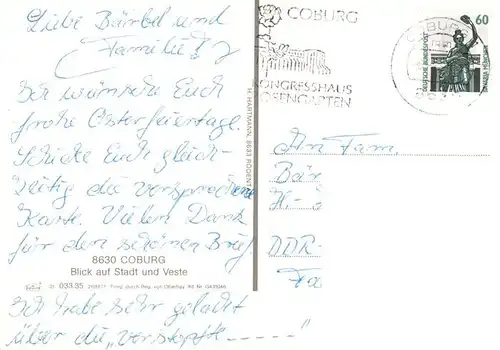 Liebe Bärbel und
Familie!
Ich wünsche Euch
frohe Osterfeiertage.
Schicke Euch gleich-
zeitig die versprochene
Karte. Vielen Dank
für den schönen Brief.
8630 COBURG
Blick auf Stadt und Veste
033.35
Ich habe sehr gelacht
über die „Verstopfte - - - - -"
H. HARTMANN, 8633 RÖDENTAL
COBURG
KONGRESSHAUS
ROSENGARTEN
COBURG
60
DEUTSCHE BUNDESPOST
BAVARIA MÜNCHEN
An Fam.
Bär
H.-
DDR-